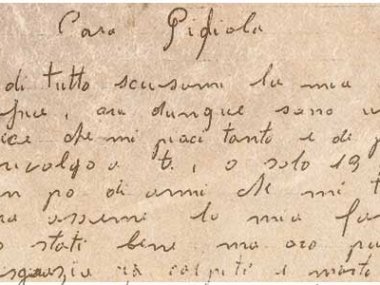 Cara Pidiola
di tutto scusami la mia
, ora dunque sono
che mi piaci tanto e di
rivolgo a t. , o solo 19
un po di anni che mi
assieme la mia
stati bene ma ora
colpiti e morto